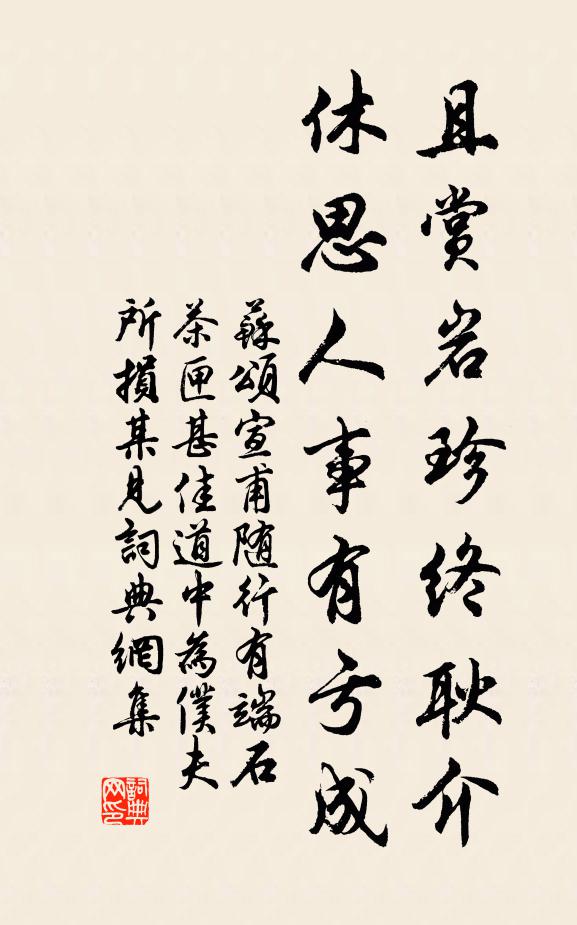 且赏岩珍终耿介
休思人事有亏成
蘇頌宣甫随行有端石
茶匣甚佳道中為僕夫
所損某見詞典網集
詞典网印